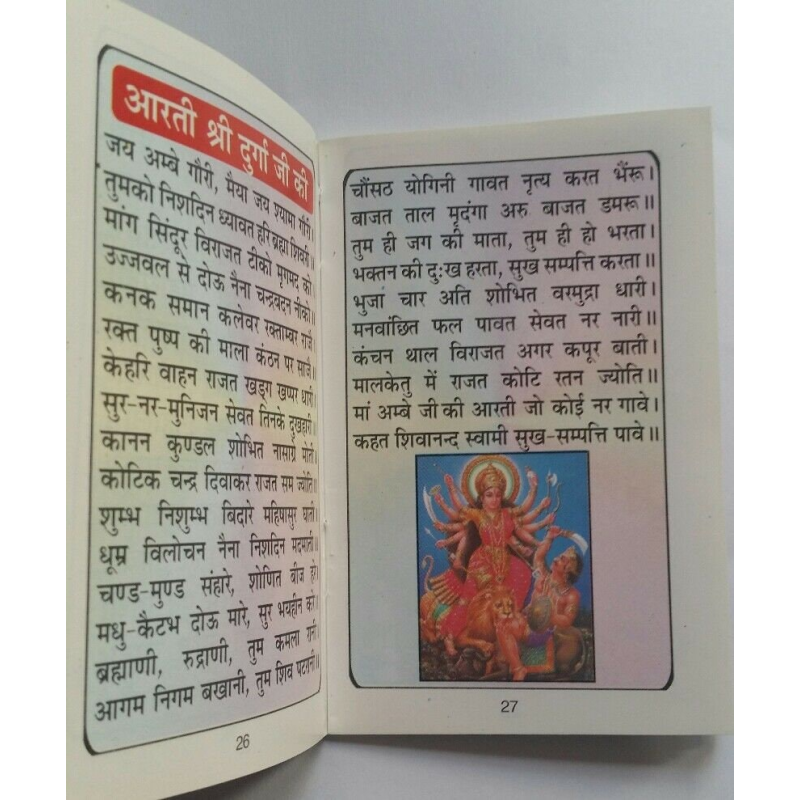 आरती श्री दुर्गा जी की
जय अम्बे गौरी, मैया जय श्यामा गौरी।
तुमको निशदिन ध्यावत हरि ब्रह्मा शिवरी॥
मांग सिंदूर विराजत टीको मृगमद को।
उज्जवल से दोऊ नैना चन्द्रबदन नीको॥
कनक समान कलेवर रक्ताम्बर राजै।
रक्त पुष्प की माला कंठन पर साजै॥
केहरि वाहन राजत खड्ग खप्पर धारी।
सुर-नर-मुनिजन सेवत तिनके दुखहारी॥
कानन कुण्डल शोभित नासाग्रे मोती।
कोटिक चन्द्र दिवाकर राजत सम ज्योति॥
शुम्भ निशुम्भ बिदारे महिषासुर घाती।
धूम्र विलोचन नैना निशदिन मदमाती॥
चण्ड-मुण्ड संहारे, शोणित बीज हरे।
मधु-कैटभ दोऊ मारे, सुर भयहीन करे॥
ब्रह्माणी, रुद्राणी, तुम कमला रानी।
आगम निगम बखानी, तुम शिव पटरानी॥
26
चौंसठ योगिनी गावत नृत्य करत भैंरू।
बाजत ताल मृदंगा अरु बाजत डमरू॥
तुम ही जग की माता, तुम ही हो भरता।
भक्तन की दुःख हरता, सुख सम्पत्ति करता॥
भुजा चार अति शोभित वरमुद्रा धारी।
मनवांछित फल पावत सेवत नर नारी॥
कंचन थाल विराजत अगर कपूर बाती।
मालकेतु में राजत कोटि रतन ज्योति॥
मां अम्बे जी की आरती जो कोई नर गावे।
कहत शिवानन्द स्वामी सुख-सम्पत्ति पावे॥
27